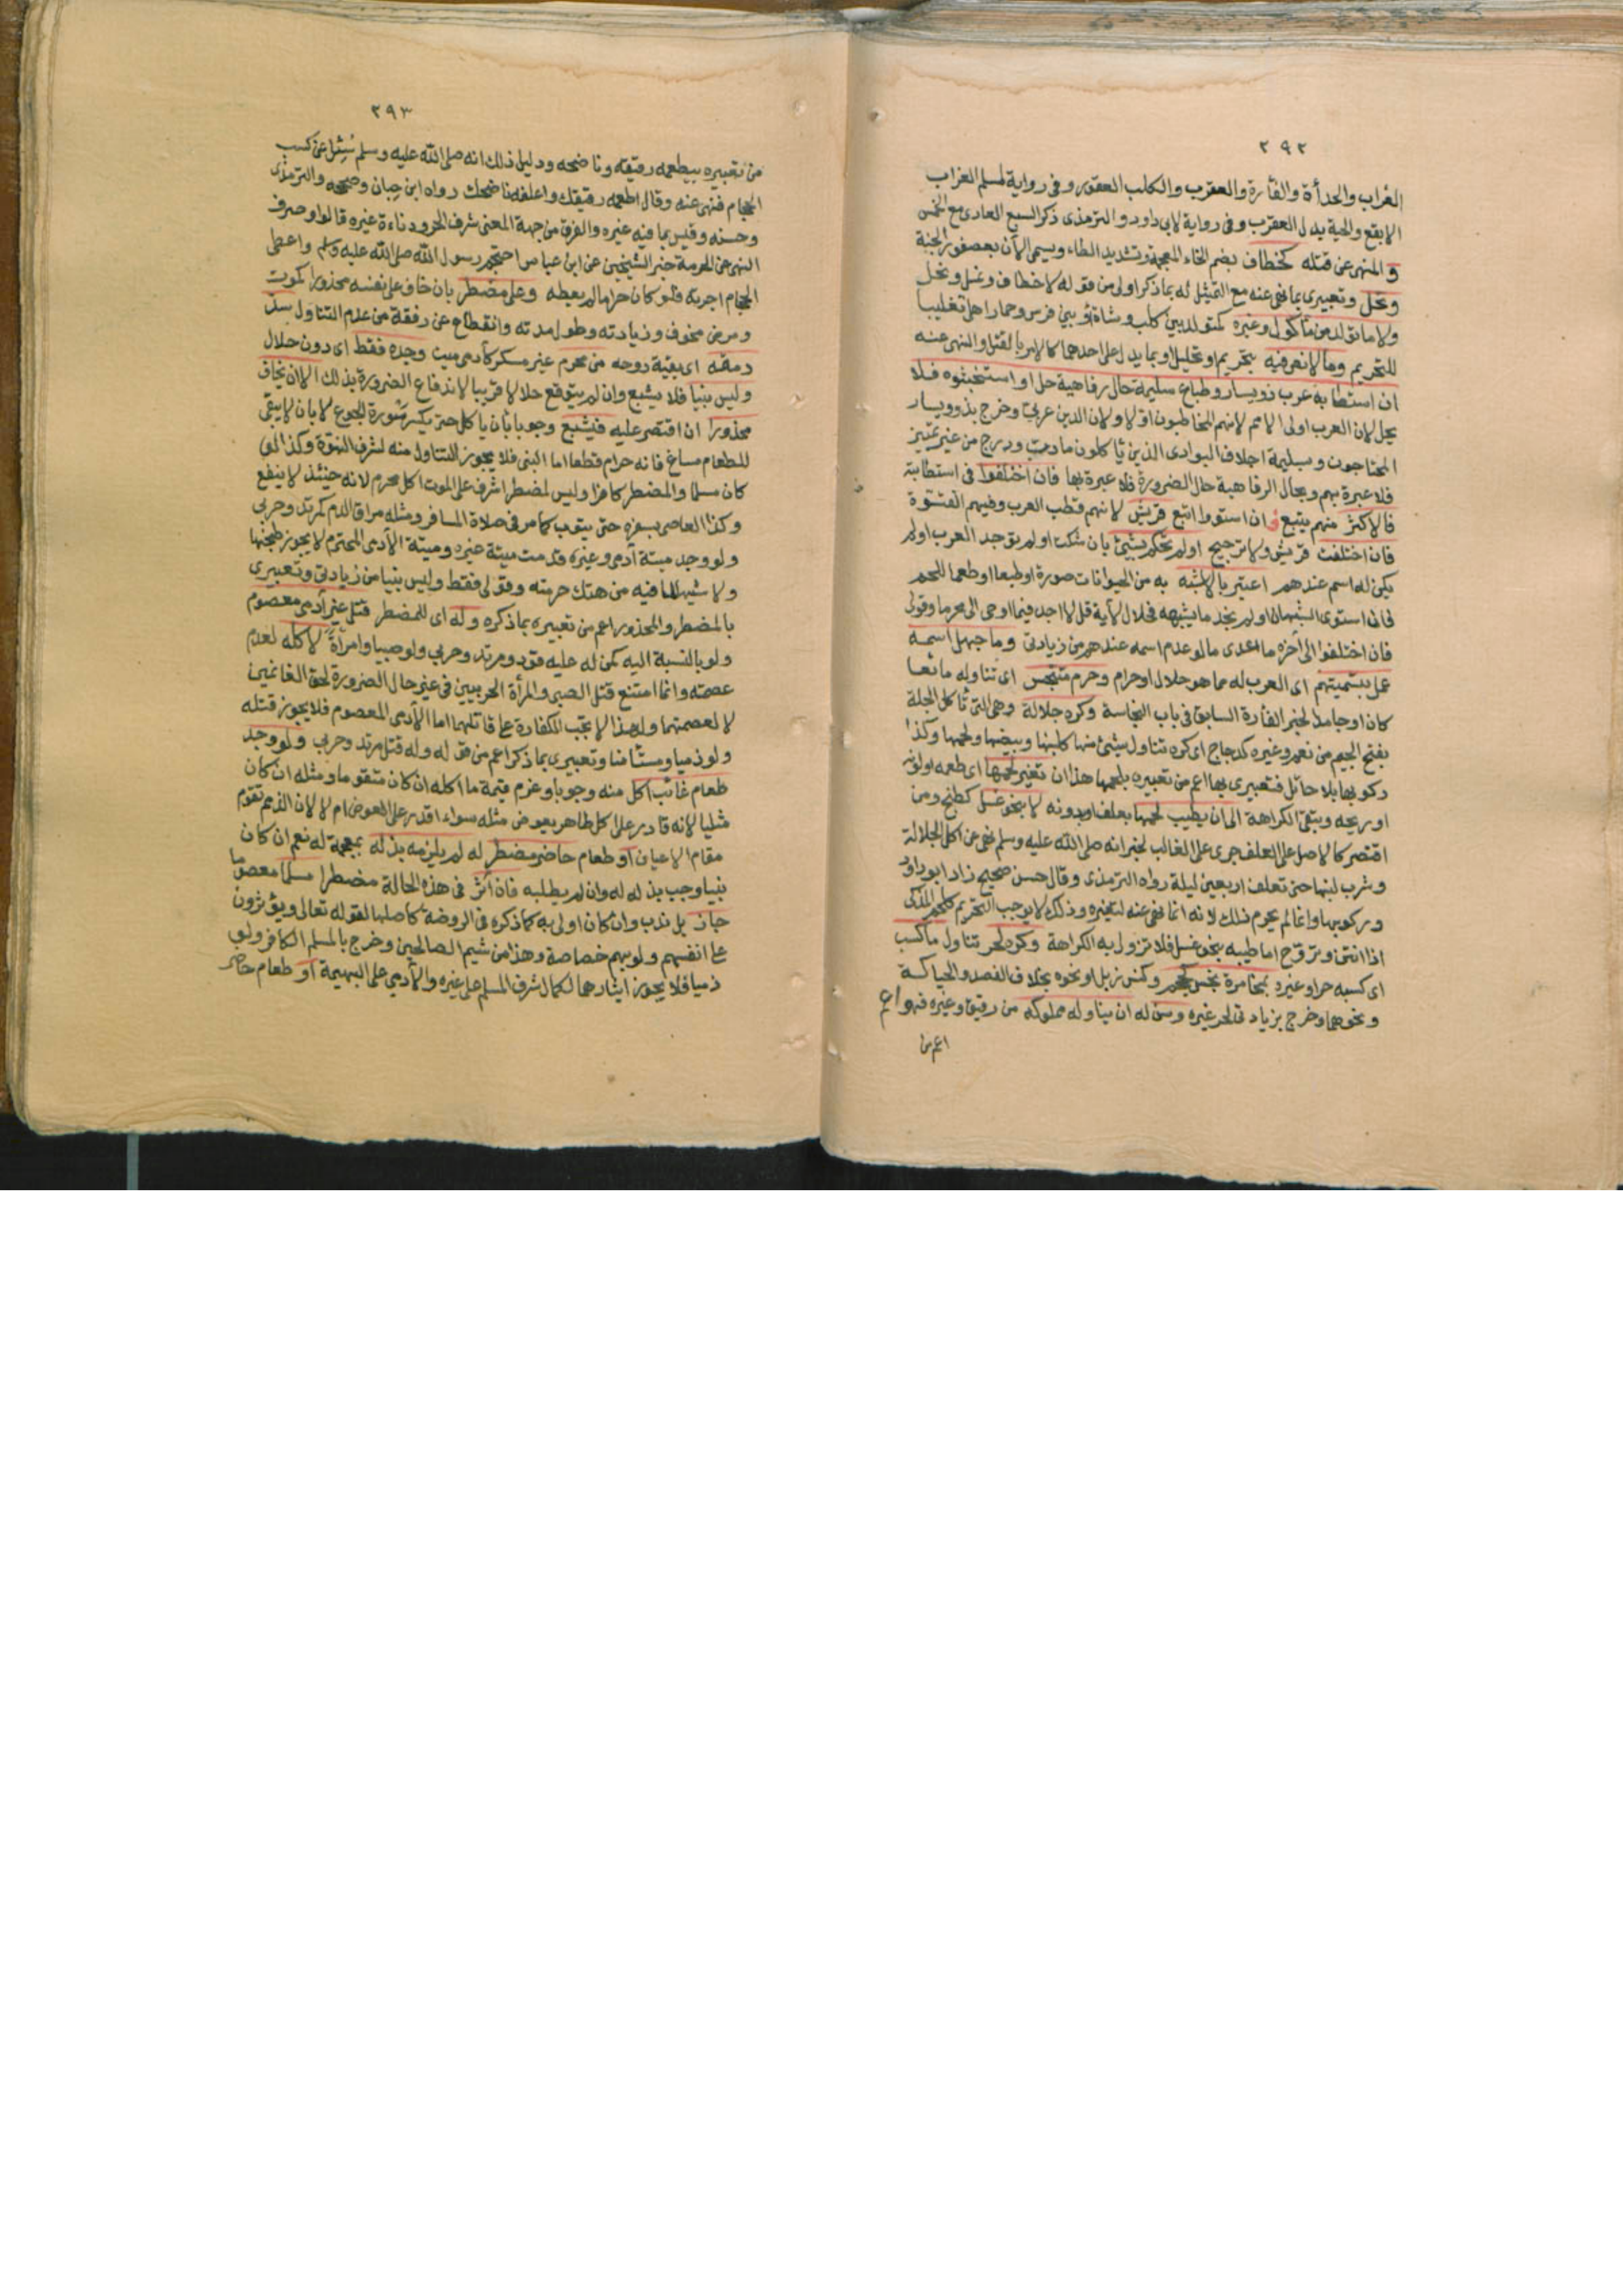 ٢٩٢
الغراب والحدأة والفأرة والعقرب والكلب العقور وفى رواية لمسلم الغراب
الابقع والحية بدل العقرب وفى رواية لابى داود والترمذى ذكر السبع العادى مع الخمس
و المنهى عن قتله كخطاف بضم الخاء المعجمة وتشديد الطاء ويسمى الآن بعصفور الجنة
ونحل وتعبيرى بما نهى عنه مع التمثيل له بما ذكر اولى من قوله لا خطاف ونمل ونحل
ولا ما تولد من مأكول وغيره كمتولد بين كلب وشاة او بين فرس وحمار اهلى تغليبا
للتحريم وما لا نص فيه بتحريم او تحليل او بما يدل على احدهما كالامر بالقتل والنهى عنه
ان استطابه عرب ذو يسار وطباع سليمة حال رفاهية حل او استخبثوه فلا
يحل لان العرب اولى الامم لانهم المخاطبون اولا ولان الدين عربى وخرج بذوو يسار
المحتاجون وبسليمة اجلاف البوادى الذين يأكلون ما دب ودرج من غير تمييز
فلا عبرة بهم وبحال الرفاهية حال الضرورة فلا عبرة بها فان اختلفوا فى استطابته
فالاكثر منهم يتبع فان استووا اتبع قريش لانهم قطب العرب وفيهم الفتوة
فان اختلفت قريش ولا ترجيح او لم تحكم بشئ بان شكت او لم توجد العرب او لم
يكن له اسم عندهم اعتبر بالاشبه به من الحيوانات صورة او طبعا او طعما للحم
فان استوى الشبهان او لم نجد ما يشبهه فحلال لآية قل لا اجد فيما اوحى الى محرما وقولى
فان اختلفوا الى آخره ما عدى ما لو عدم اسمه عندهم من زيادتى وما جهل اسمه
عمل بتسميتهم اى العرب له مما هو حلال او حرام وحرم متنجس اى تناوله مائعا
كان او جامدا لخبر الفأرة السابق فى باب النجاسة وكره جلالة وهى التى تأكل الجلة
بفتح الجيم من نعم وغيره كدجاج اى كره تناول شئ منها كلبنها وبيضها ولحمها وكذا
ركوبها بلا حائل فتعبيرى بها اعم من تعبيره بلحمها هذا ان تغير لحمها اى طعمه او لونه
او ريحه وتبقى الكراهة الى ان يطيب لحمها بعلف او بدونه لا بنحو غسل كطبخ ومن
اقتصر كالاصل على العلف جرى على الغالب لخبر انه صلى الله عليه وسلم نهى عن اكل الجلالة
وشرب لبنها حتى تعلف اربعين ليلة رواه الترمذى وقال حسن صحيح زاد ابو داود
وركوبها وانما لم يحرم ذلك لانه انما نهى عنه لتغيره وذلك لا يوجب التحريم كلحم المذكى
اذا انتن وتروح اما طيبه بنحو غسل فلا تزول به الكراهة وكره لحر تناول ما كسب
اى كسبه حر او غيره بمخامرة نجس كحجم وكنس زبل او نحوه بخلاف الفصد والحياكة
ونحوهما وخرج بزيادتى لحر غيره وسن له ان يناوله مملوكه من رقيق وغيره فهو اعم
اعم من
٢٩٣
من تعبيره بيطعمه رقيقه وناضحه ودليل ذلك انه صلى الله عليه وسلم سئل عن كسب
الحجام فنهى عنه وقال اطعمه رقيقك واعلفه ناضحك رواه ابن حبان وصححه والترمذى
وحسنه وقيس بما فيه غيره والفرق من جهة المعنى شرف الحر ودناءة غيره قالوا وصرف
النهى عن الحرمة خبر الشيخين عن ابن عباس احتجم رسول الله صلى الله عليه وسلم واعطى
الحجام اجرته فلو كان حراما لم يعطه وعلى مضطر بان خاف على نفسه محذورا كموت
ومرض مخوف وزيادته وطول مدته وانقطاع عن رفقة من عدم التناول سد
رمقه اى بقية روحه من محرم غير مسكر كآدمى ميت وجده فقط اى دون حلال
وليس نبيا فلا يشبع وان لم يتوقع حلالا قريبا لاندفاع الضرورة بذلك الا ان يخاف
محذورا ان اقتصر عليه فيشبع وجوبا بان يأكل حتى يكسر سورة الجوع لا بان لا يبقى
للطعام مساغ فانه حرام قطعا اما النبى فلا يجوز التناول منه لشرف النبوة وكذا لو
كان مسلما والمضطر كافرا وليس لمضطر اشرف على الموت اكل محرم لانه حينئذ لا ينفع
وكذا العاصى بسفره حتى يتوب كما مر فى صلاة المسافر ومثله مراق الدم كمرتد وحربى
ولو وجد ميتة آدمى وغيره قدمت ميتة غيره وميتة الآدمى المحترم لا يجوز طبخها
ولا شيها لما فيه من هتك حرمته وقولى فقط وليس نبيا من زيادتى وتعبيرى
بالمضطر والمحذور اعم من تعبيره بما ذكره وله اى للمضطر قتل غير آدمى معصوم
ولو بالنسبة اليه كمن له عليه قود ومرتد وحربى ولو صبيا وامرأة لاكله لعدم
عصمته وانما امتنع قتل الصبى والمرأة الحربيين فى غير حال الضرورة لحق الغانمين
لا لعصمتهما ولهذا لا تجب الكفارة على قاتلهما اما الآدمى المعصوم فلا يجوز قتله
ولو ذميا ومستأمنا وتعبيرى بما ذكر اعم من قوله وله قتل مرتد وحربى ولو وجد
طعام غائب اكل منه وجوبا وغرم قيمة ما اكله ان كان متقوما ومثله ان كان
مثليا لانه قادر على اكل طاهر بعوض مثله سواء اقدر على العوض ام لا لان الذمم تقوم
مقام الاعيان او طعام حاضر مضطر له لم يلزمه بذله بمعجمة له نعم ان كان
نبيا وجب بذله له وان لم يطلبه فان آثر فى هذه الحالة مضطرا مسلما معصوما
جاز بل ندب وان كان اولى به كما ذكره فى الروضة كاصلها لقوله تعالى ويؤثرون
على انفسهم ولو بهم خصاصة وهذا من شيم الصالحين وخرج بالمسلم الكافر ولو
ذميا فلا يجوز ايثارهما لكمال شرف المسلم على غيره والآدمى على البهيمة او طعام حاضر